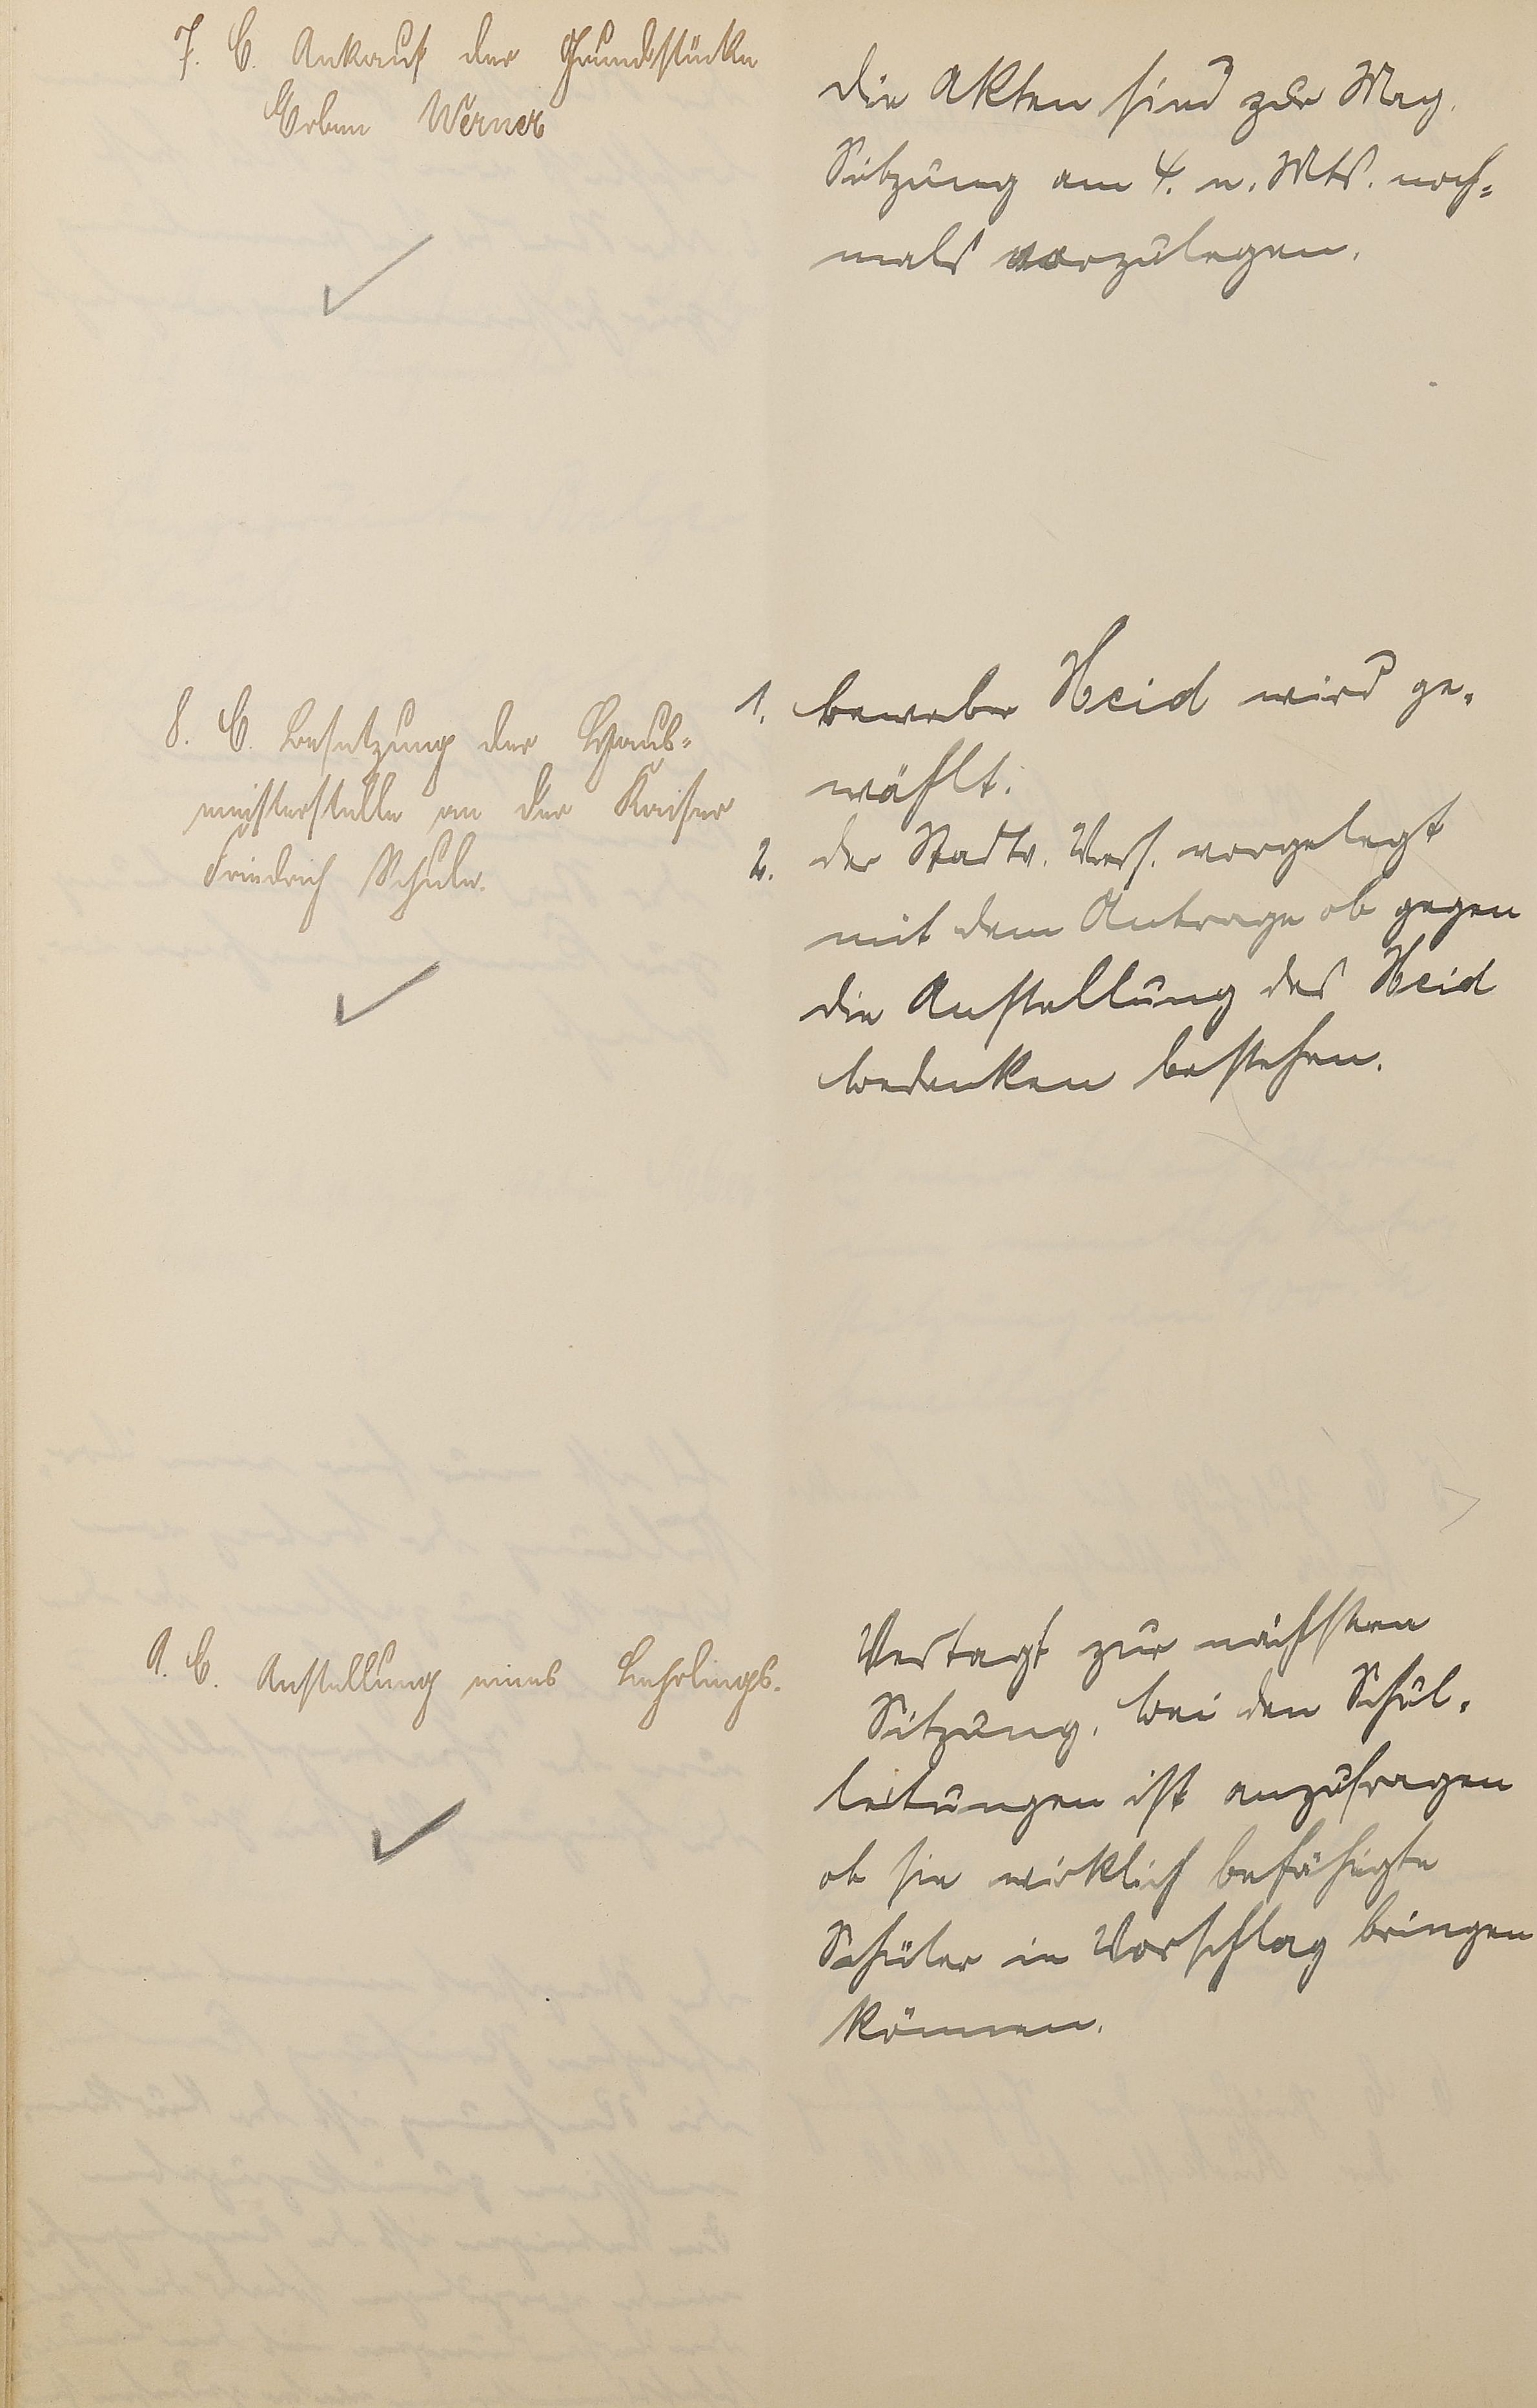 7. C. Ankauf der Grundstücke
Erben Werner
die Akten sind zur Mag.
Sitzung am 4. n. Mts. noch=
mals vorzulegen.
8. C. Besetzung der Haus=
meisterstelle an der Kaiser
Friedrich Schule.
1. bewerber Heid wird ge=
wählt.
2. der Stadtv. Vers. vorgelegt
mit dem Antrage ob gegen
die Anstellung des Heid
bedenken bestehen.
9. C. Anstellung eines Lehrlings.
Vertagt zur nächsten
Sitzung. bei den Schul=
leitungen ist anzufragen
ob sie wirklich befähigte
Schüler in Vorschlag bringen
können.